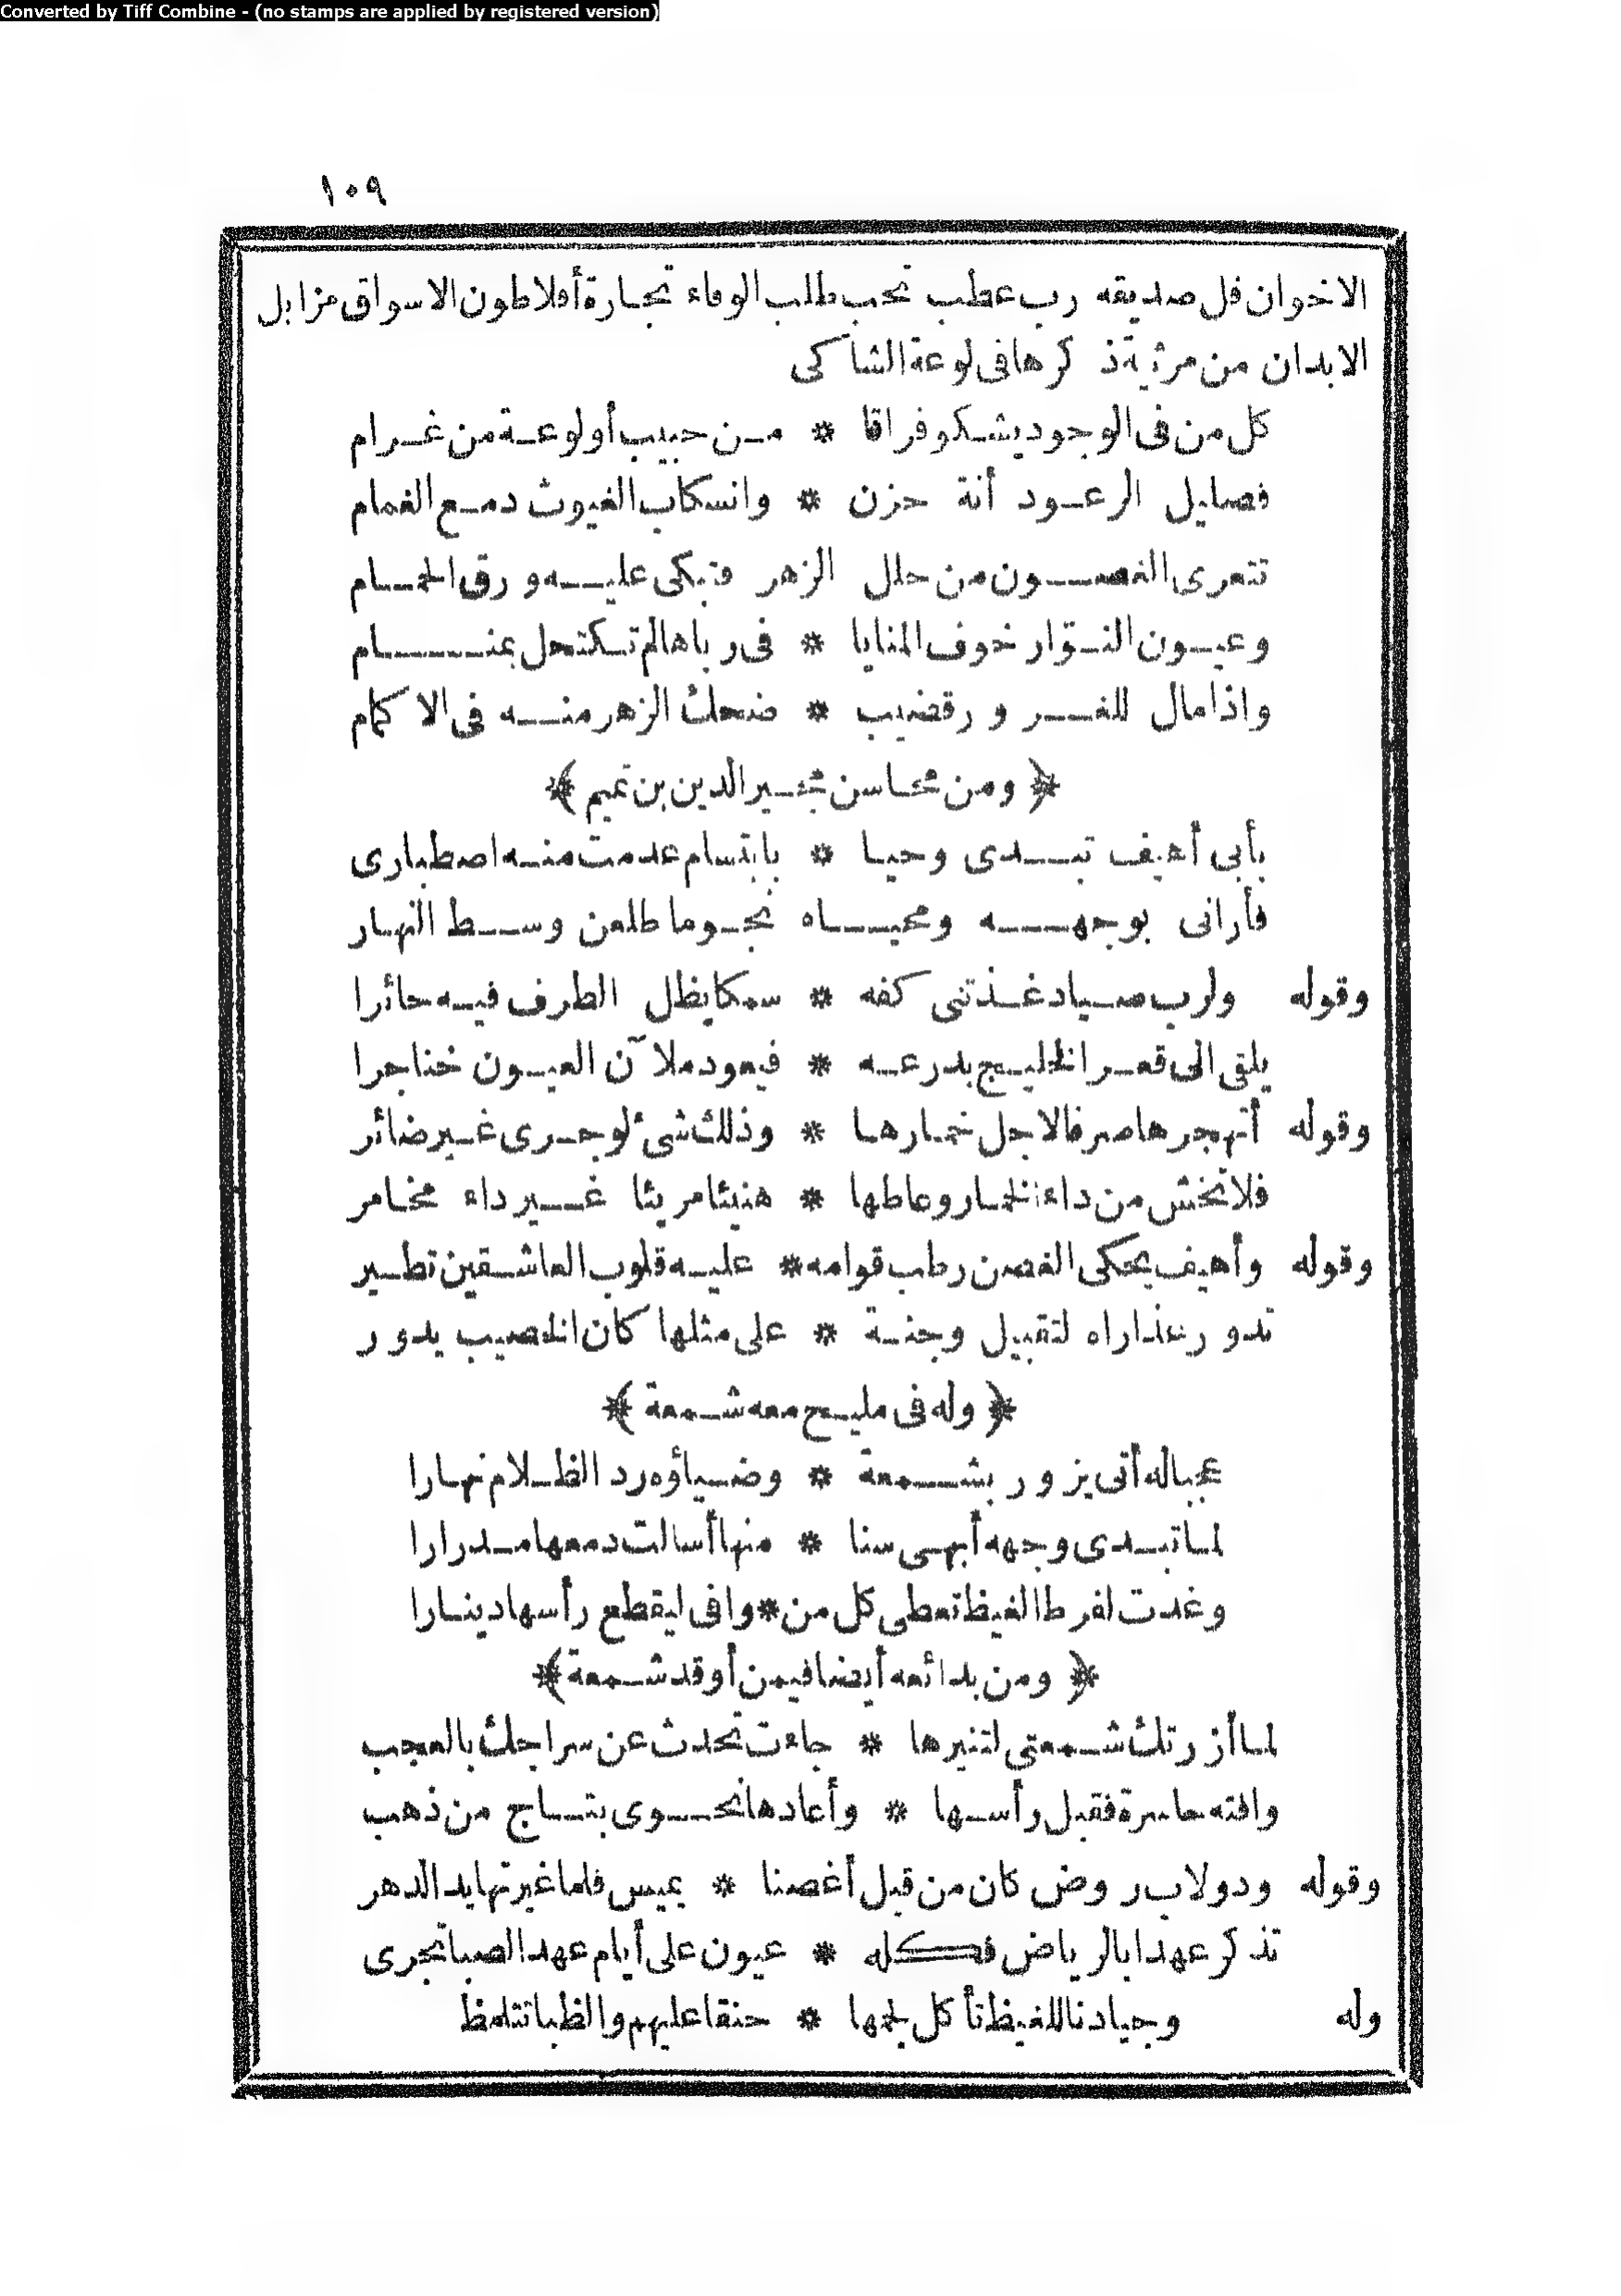 Converted by Tiff Combine - (no stamps are applied by registered version)
١٠٩
الاخوان قل صديقه رب عطب تحب طلب الوفاء تجارة أفلاطون الاسواق مزابل
الابدان من مرثية ذكرها فى لوعة الشاكى
كل من فى الوجود يشكو فراقا * من حبيب أو لوعة من غرام
فصليل الرعود أنة حزن * وانسكاب الغيوث دمع الغمام
تتعرى الغصون من حلل الزهر فتبكى عليه ورق الحمام
وعيون النوّار خوف المنايا * فى رباها لم تكتحل بمنام
واذا مال للغرور قضيب * ضحك الزهر منه فى الاكمام
﴿ ومن محاسن مجير الدين بن تميم ﴾
بأبى أهيف تبدى وحيا * بابتسام عدمت منه اصطبارى
فأرانى بوجهه ومحياه نجوما طلعن وسط النهار
وقوله ولرب صياد غذتنى كفه * سمكا يظل الطرف فيه حائرا
يلقى الى قعر الخليج بدرعه * فيعود ملآن العيون خناجرا
وقوله أتهجرها صرفا لاجل خمارها * وذلك شئ لو جرى غير ضائر
فلا تخش من داء الخمار وعاطها * هنيئا مريئا غير داء مخامر
وقوله وأهيف يحكى الغصن رطب قوامه * عليه قلوب العاشقين تطير
تدور عذاراه لتقبيل وجنة * على مثلها كان الخصيب يدور
﴿ وله فى مليح معه شمعة ﴾
عجبا له أتى يزور بشمعة * وضياؤه رد الظلام نهارا
لما تبدى وجهه أبهى سنا * منها أسالت دمعها مدرارا
وغدت لفرط الغيظ تعطى كل من * وافى ليقطع رأسها دينارا
﴿ ومن بدائعه أيضا فيمن أوقد شمعة ﴾
لما أزرتك شمعتى لتنيرها * جاءت تحدث عن سراجك بالعجب
وافته حاسرة فقبل رأسها * وأعادها نحوى بتاج من ذهب
وقوله ودولاب روض كان من قبل أغصنا * يميس فلما غيرتها يد الدهر
تذكر عهدا بالرياض فكله * عيون على أيام عهد الصبا تجرى
وله وجيادنا للغيظ تأكل لجمها * حنقا عليهم والظبا تتلمظ